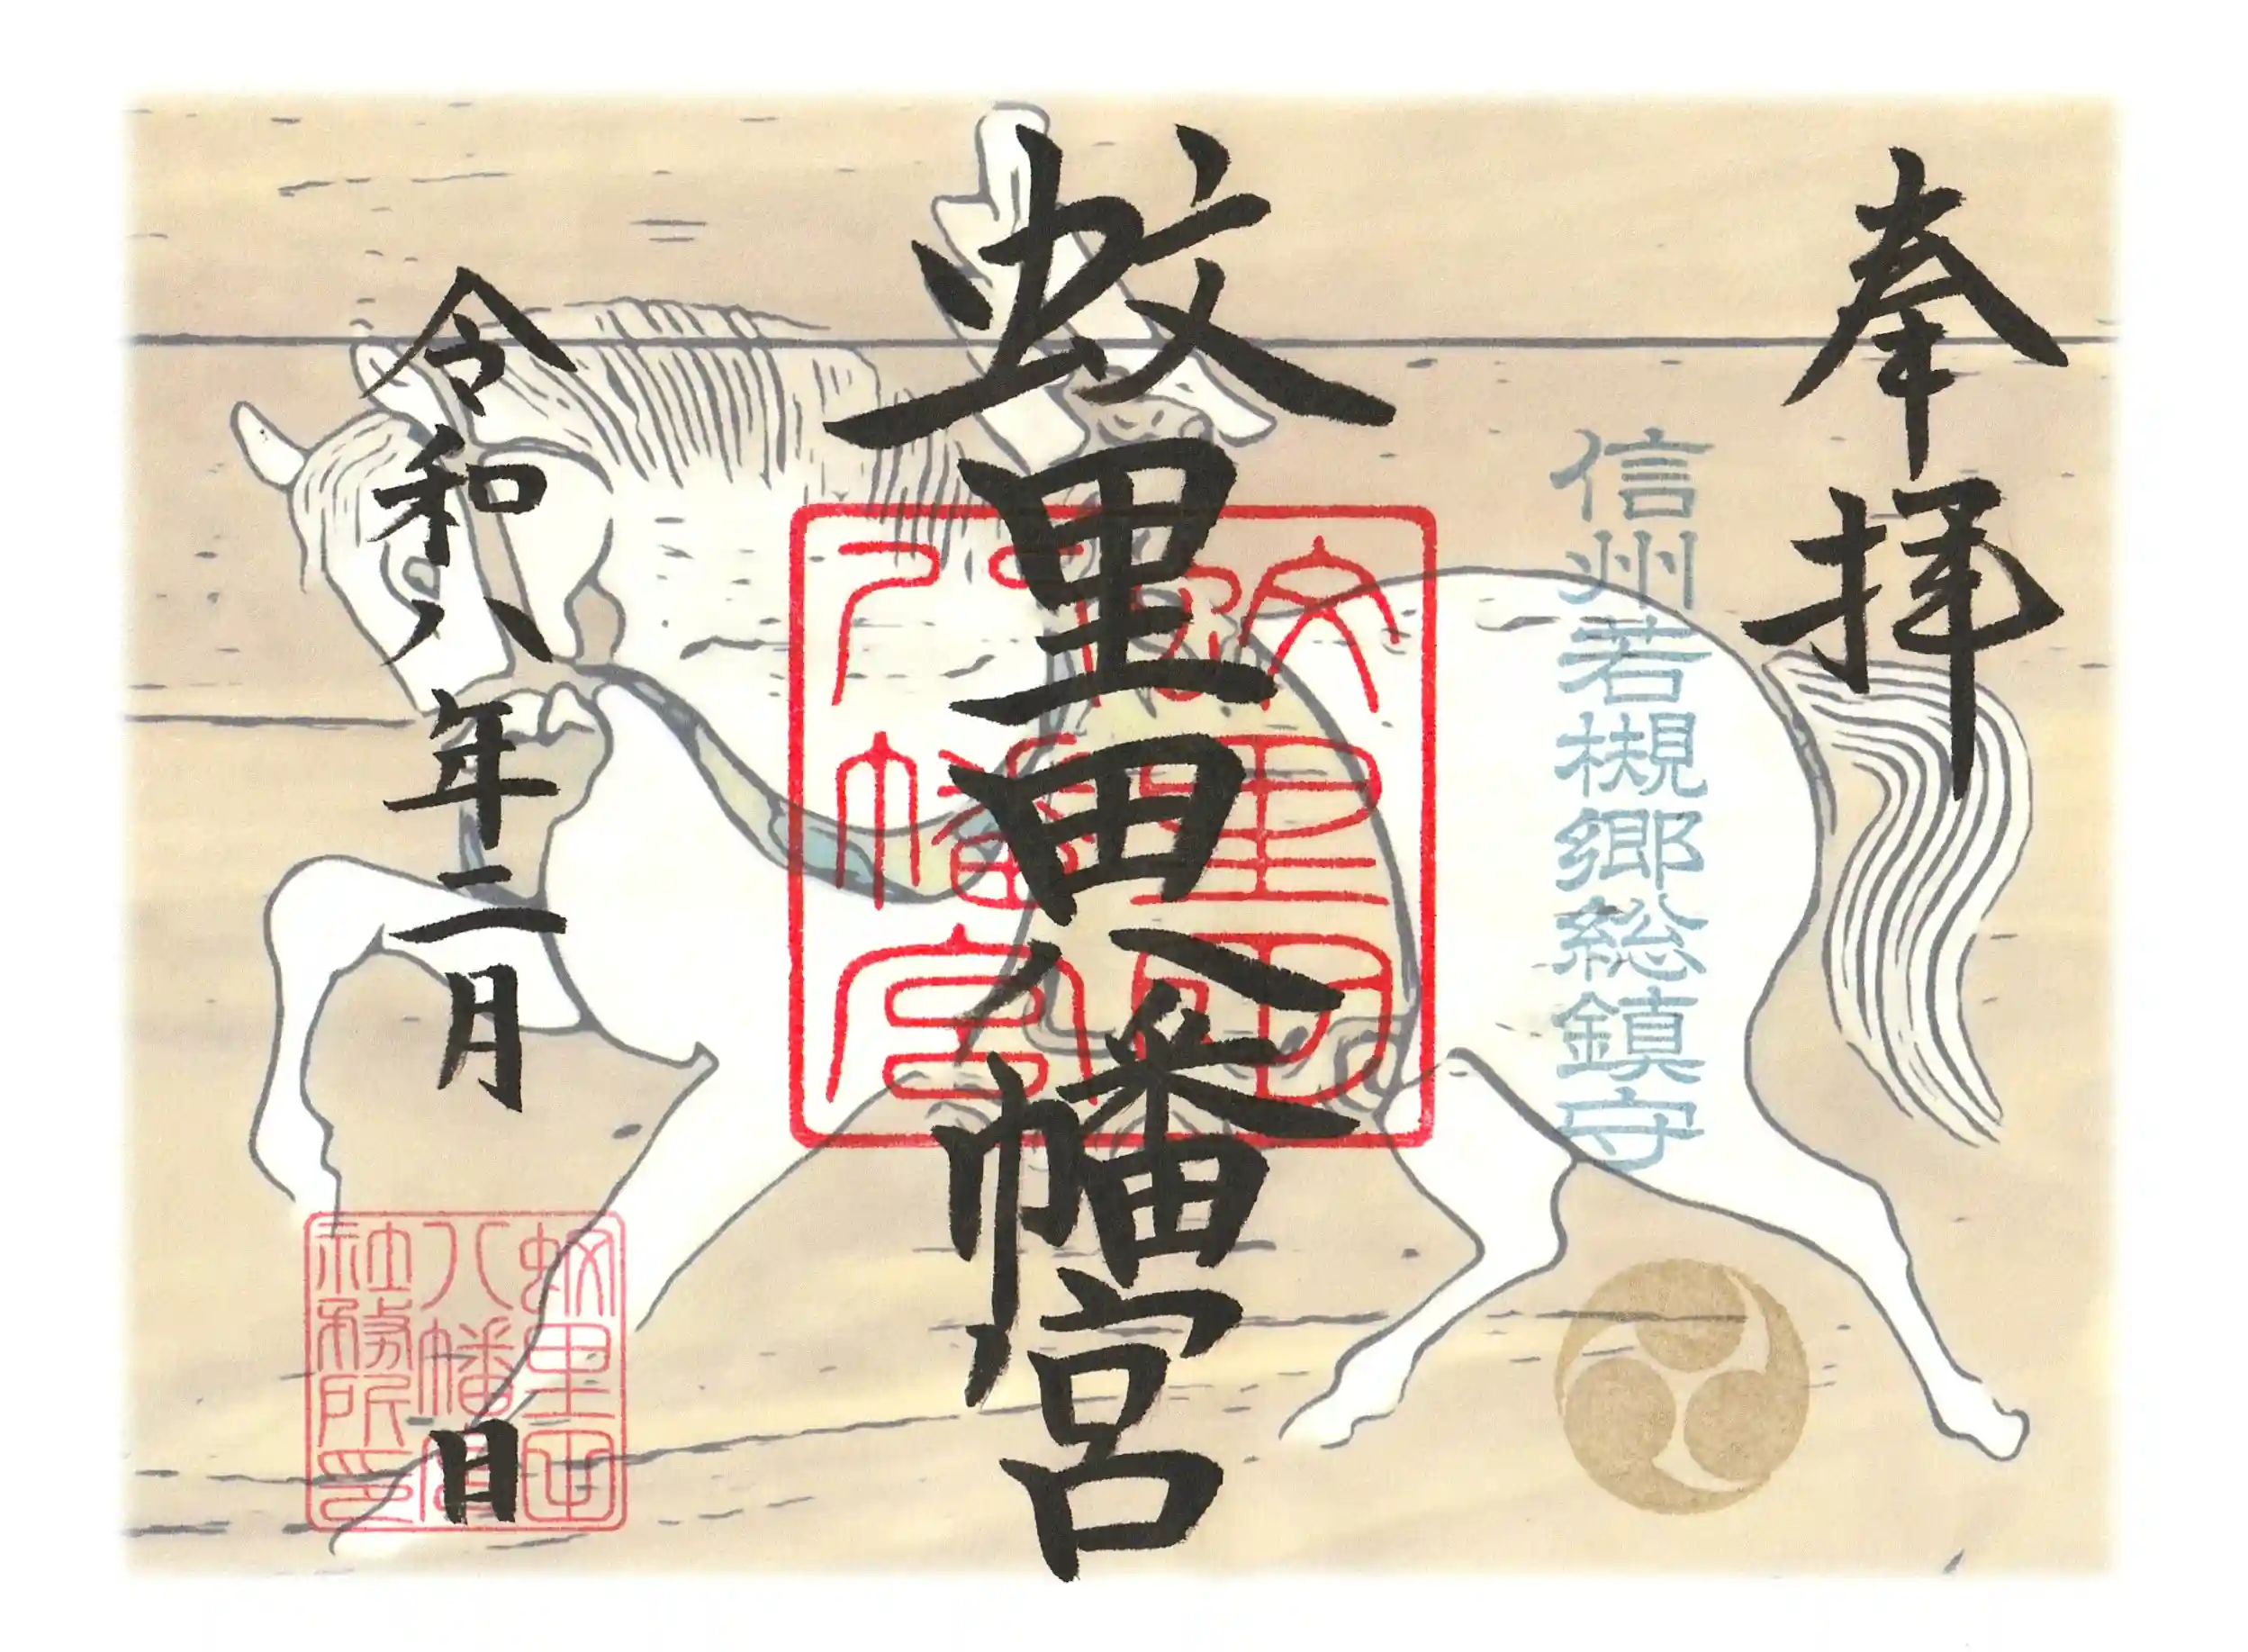 奉拝
信州若槻郷総鎮守
蚊里田八幡宮
蚊里田
八幡宮
令和八年二月 日
蚊里田
八幡宮
社務所印